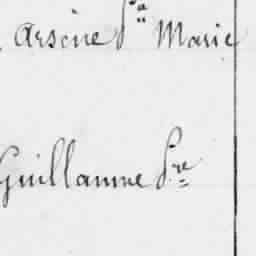 Arsène Jn Marie
Guillaume Pre